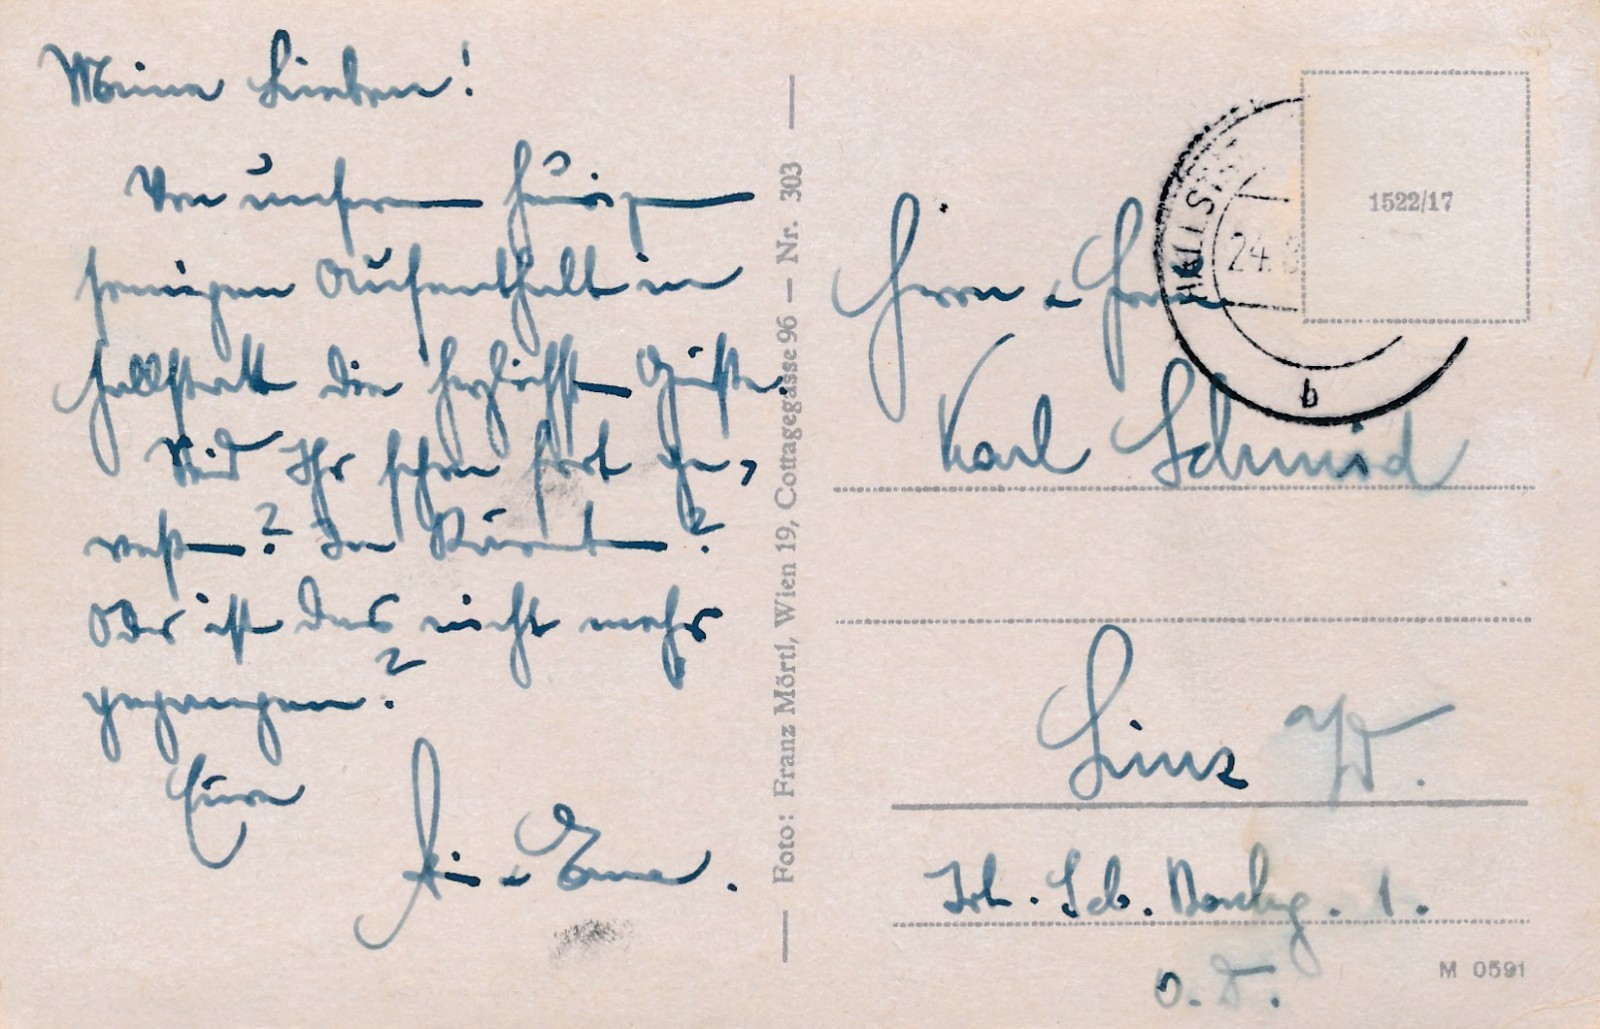 Meine Lieben!
Von unserem heurigen
sonnigen Aufenthalt in
Hallstatt die herzlichsten Grüße.
Seid Ihr schon fort ge-
wesen? In Kärnten?
Oder ist das nicht mehr
gegangen?
Eure
u Erna.
Foto: Franz Mörtl, Wien 19, Cottagegasse 96 — Nr. 303
HALLST
24.
b
1522/17
Herrn u Frau
Karl Schmid
Linz a/D.
Joh. Seb. Bachg. 1.
O. Ö.
M 0591